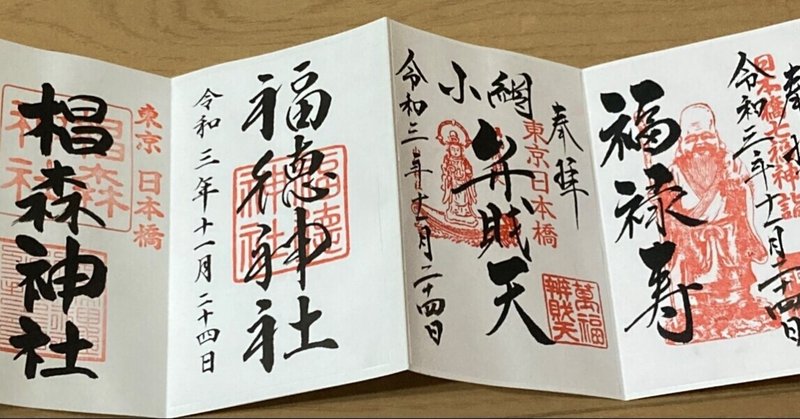 奉拝
日本橋七福神詣
福禄寿
令和三年十一月二十四日
奉拝
東京日本橋
小網
弁財天
萬福
辨財天
令和三年十一月二十四日
福徳神社
福徳
神社
令和三年十一月二十四日
東京 日本橋
椙森神社
椙森
神社